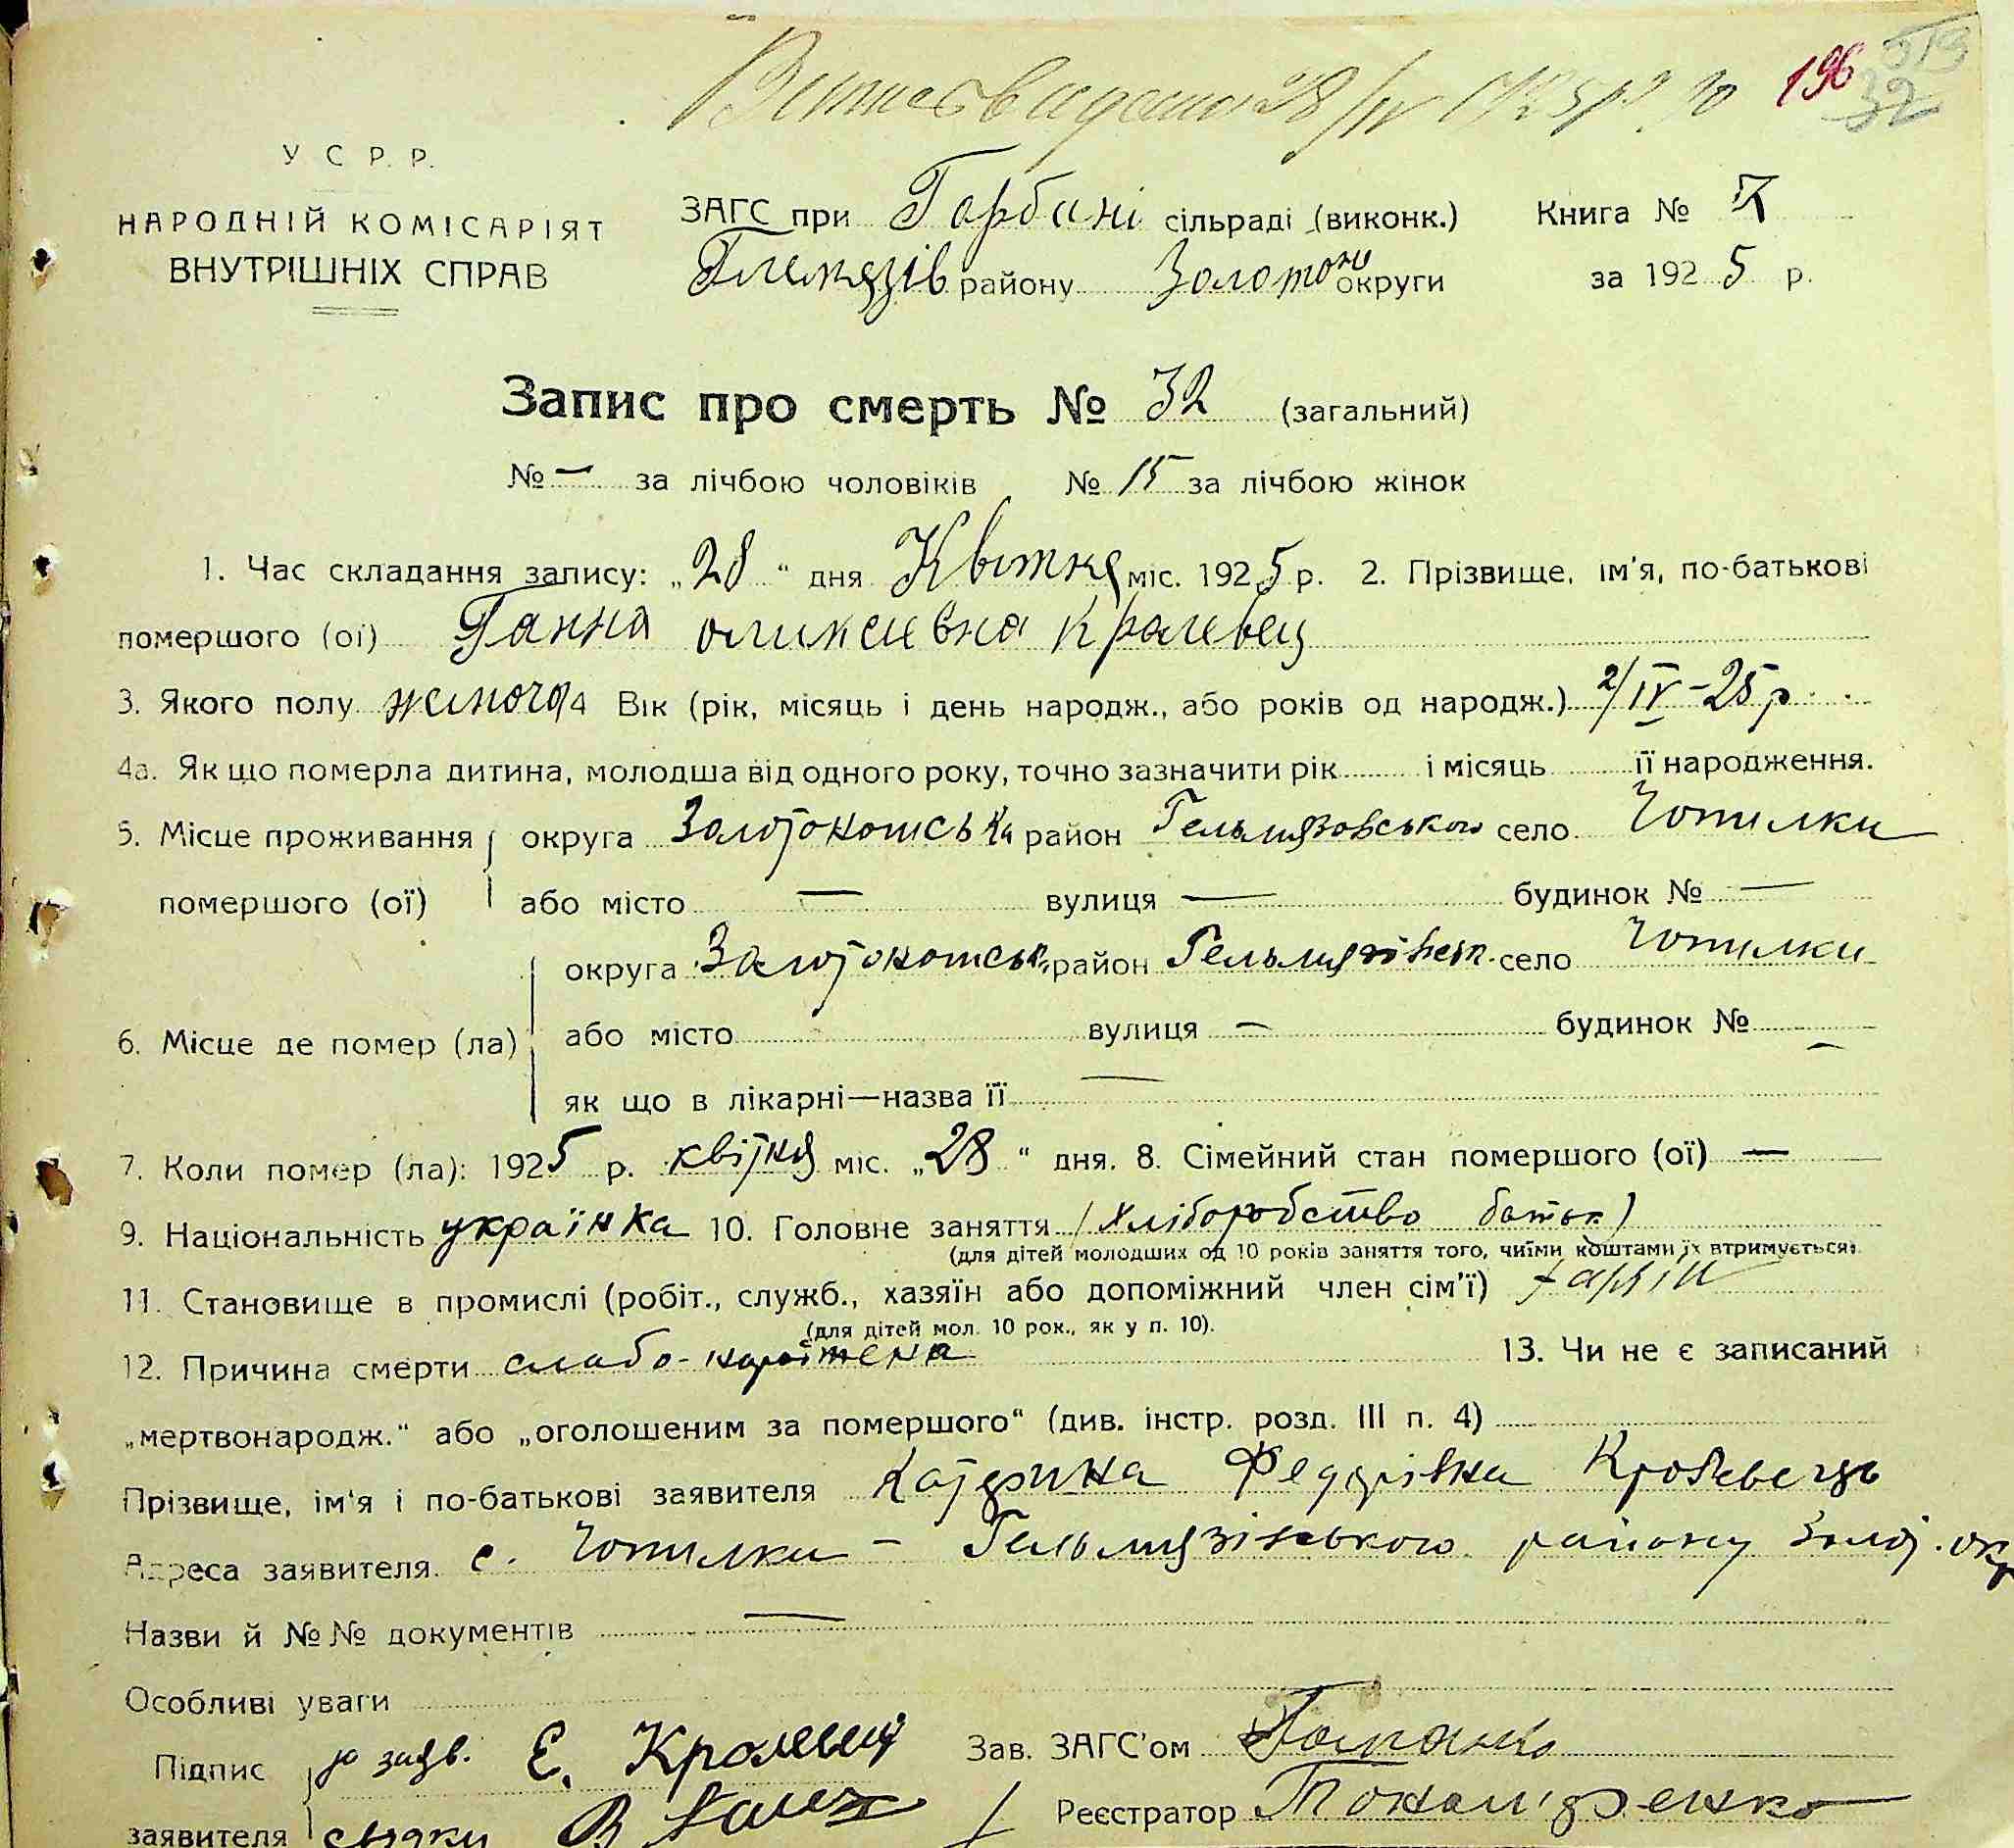 28/IV 1925 р. 196 32
У С Р. Р.
НАРОДНІЙ КОМІСАРІЯТ
ВНУТРІШНІХ СПРАВ
ЗАГС при Горбані сільраді (виконк.) Книга № ІХ
району Золотонו округи за 1925 р.
Запис про смерть № 32 (загальний)
№ — за лічбою чоловіків № 15 за лічбою жінок
1. Час складання запису: „28“ дня Квітня міс. 1925 р. 2. Прізвище, ім'я, по-батькові
помершого (ої) Ганна олексиевна Кралевец
3. Якого полу жіночоя 4 Вік (рік, місяць і день народж., або років од народж.) 2/IV-25 р
4а. Як що померла дитина, молодша від одного року, точно зазначити рік і місяць її народження.
5. Місце проживання округа Золотоношська район Гельмязовського село Чопилки
помершого (ої) або місто — вулиця — будинок № —
округа Золотоношськ. район Гельмязівськ. село Чопилки
6. Місце де помер (ла) або місто вулиця — будинок № —
як що в лікарні—назва її —
7. Коли помер (ла): 1925 р. квітня міс. „28“ дня. 8. Сімейний стан помершого (ої) —
9. Національність українка 10. Головне заняття (хліборобство батьк)
(для дітей молодших од 10 років заняття того, чиїми коштами їх втримується)
11. Становище в промислі (робіт., служб., хазяїн або допоміжний член сім'ї) хазяїн
(для дітей мол. 10 рок., як у п. 10).
12. Причина смерти слабо-народжена 13. Чи не є записаний
„мертвонародж.“ або „оголошеним за помершого“ (див. інстр. розд. III п. 4)
Прізвище, ім'я і по-батькові заявителя Катерина Федорівна Кролевець
Адреса заявителя. с. Чопилки - Гельмязівського району Золот. окр
Назви й №№ документів —
Особливі уваги
Підпис за заяв. Е. Кролевец Зав. ЗАГС'ом
заявителя свідки В Реєстратор